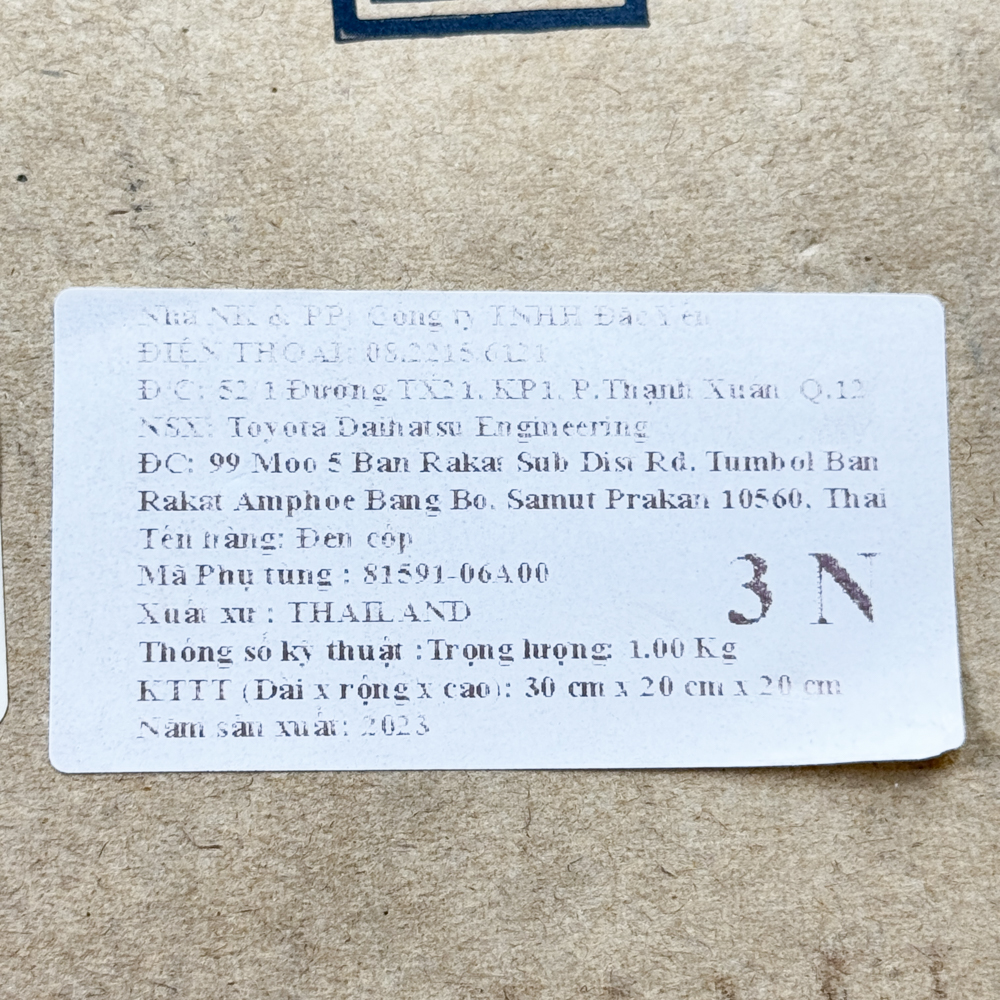 Nhà NK & PP: Công ty TNHH Đắc Yến
ĐIỆN THOẠI: 08.2215.6121
Đ/C: 52/1 Đường TX21, KP1, P.Thạnh Xuân, Q.12
NSX: Toyota Daihatsu Engineering
ĐC: 99 Moo 5 Ban Rakat Sub Dist Rd. Tumbol Ban
Rakat Amphoe Bang Bo, Samut Prakan 10560, Thai
Tên hàng: Đèn cốp
Mã Phụ tùng : 81591-06A00
3 N
Xuất xứ : THAILAND
Thông số kỹ thuật :Trọng lượng: 1.00 Kg
KTTT (Dài x rộng x cao): 30 cm x 20 cm x 20 cm
Năm sản xuất: 2023